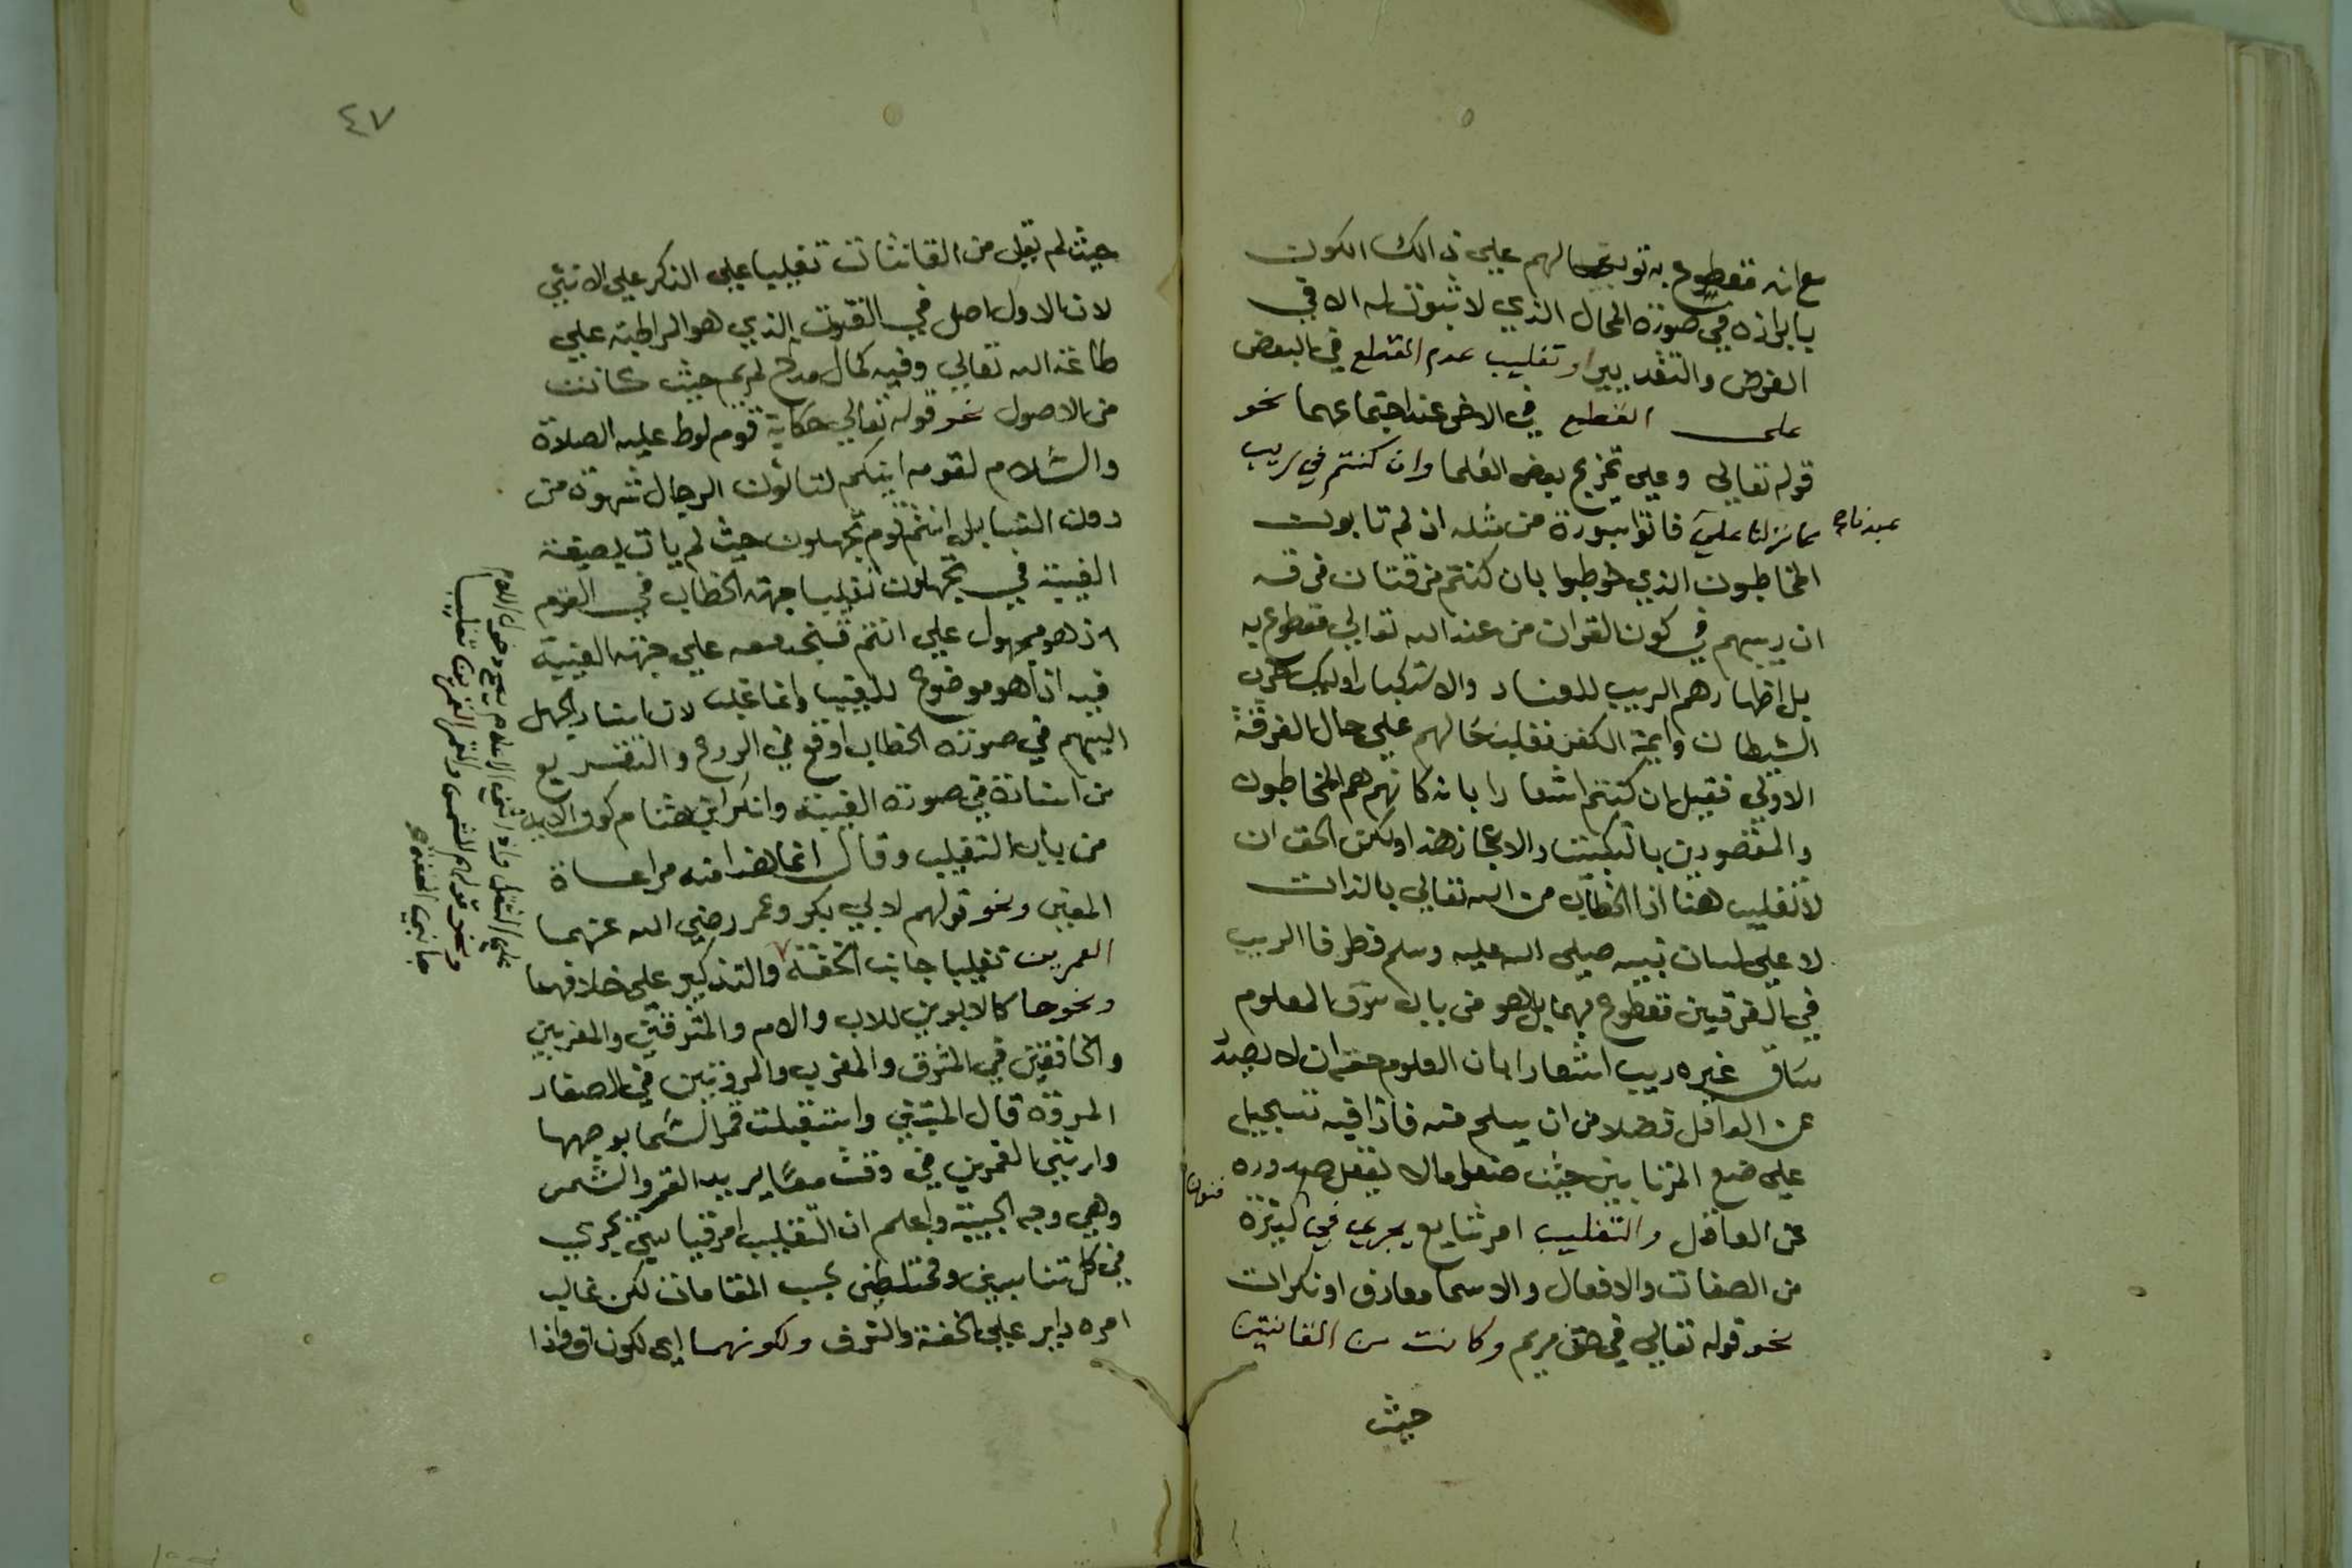 مع انه مقطوع به توبيخا لهم علي ذالك الكون
بابرازه في صورة المحال الذي لا ثبوت له الا في
الفرض والتقدير او تغليب عدم القطع في البعض
على القطع في الاخر عند اجتماعهما نحو
قوله تعالي وعلي تخريج بعض العلما وان كنتم في ريب
مما نزلنا علي فاتوا بسورة من مثله ان لم تابوت
عبدنا
المخاطبون الذي خوطبوا بان كنتم فرقتان فرقه
ان ريبهم في كون القران من عند الله تعالي مقطوع به
بل اظهارهم الريب للعناد والاستكبار اوليك حزب
الشيطان وايمة الكفر فغلب حالهم علي حال الفرقة
الاولي فقيل ان كنتم اشعارا بانه كانهم هم المخاطبون
والمقصودين بالتبكيت والاعجاز هذا ولكن الحق ان
لا تغليب هنا اذ الخطاب من الله تعالي بالذات
لا علي لسان نبيه صلي الله عليه وسلم فطرفا الريب
في الفرقتين مقطوع بهما بل هو من باب سوق المعلوم
مساق غيره ريب اشعارا بان المعلوم حقه ان لا يصدر
عن العاقل فضلا من ان يسلم منه فاذا فيه تسجيل
علي صنع المرتابين حيث صنعوا مالا يفعل صدوره
عن العاقل والتغليب امر شايع يجري في كثيرة
فنون
من الصفات والافعال والاسما معارف او نكرات
نحو قوله تعالي في حق مريم وكانت من القانتين
حيث
٤٧
حيث لم يقل من القانتات تغليبا علي الذكر علي الانثي
لان الاول اصل في القنوت الذي هو المراظبة علي
طاعة الله تعالي وفيه كمال مدح لمريم حيث كانت
من الاصول نحو قوله تعالي حكاية قوم لوط عليه الصلاة
والسلام لقومه اينكم لتاتون الرجال شهوة من
دون النسا بل انتم قوم تجهلون حيث لم يات بصيغة
الغيبة في تجهلون تغليبا جهة الخطاب في القوم
اذ هو محمول علي انتم فيتحد معه علي جهة الغيبة
فيه اذ هو موضوع للغيب وانما غلب لان اسناد الجهل
اليهم في صورة الخطاب اوقع في الردع والتقريع
من اسناده في صورة الغيبة وانكر ابن هشام كون الاية
من باب التغليب وقال انما هذا منه مراعاة
المعني ونحو قولهم لابي بكر وعمر رضي الله عنهما
العمرين تغليبا جانب الخفة والتذكير علي خلافهما
ونحوها كالابوين للاب والام والمشرقين والمغربين
والخافقين في المشرق والمغرب والمروتين في الصفا
المروة قال المتنبي واستقبلت قمر السما بوجهها
وارتني القمرين في وقت معا يريد القمر والشمس
وهي وجه الحبيبة واعلم ان التغليب امر قياسي يجري
في كل متناسبين ومختلطين بحسب المقامات لكن غالب
امره داير علي الخفة والشرف ولكونهما اي لكون ان واذا
ونحو قولهم للشمس والقمر القمرين تغليبا
جانب الخفة